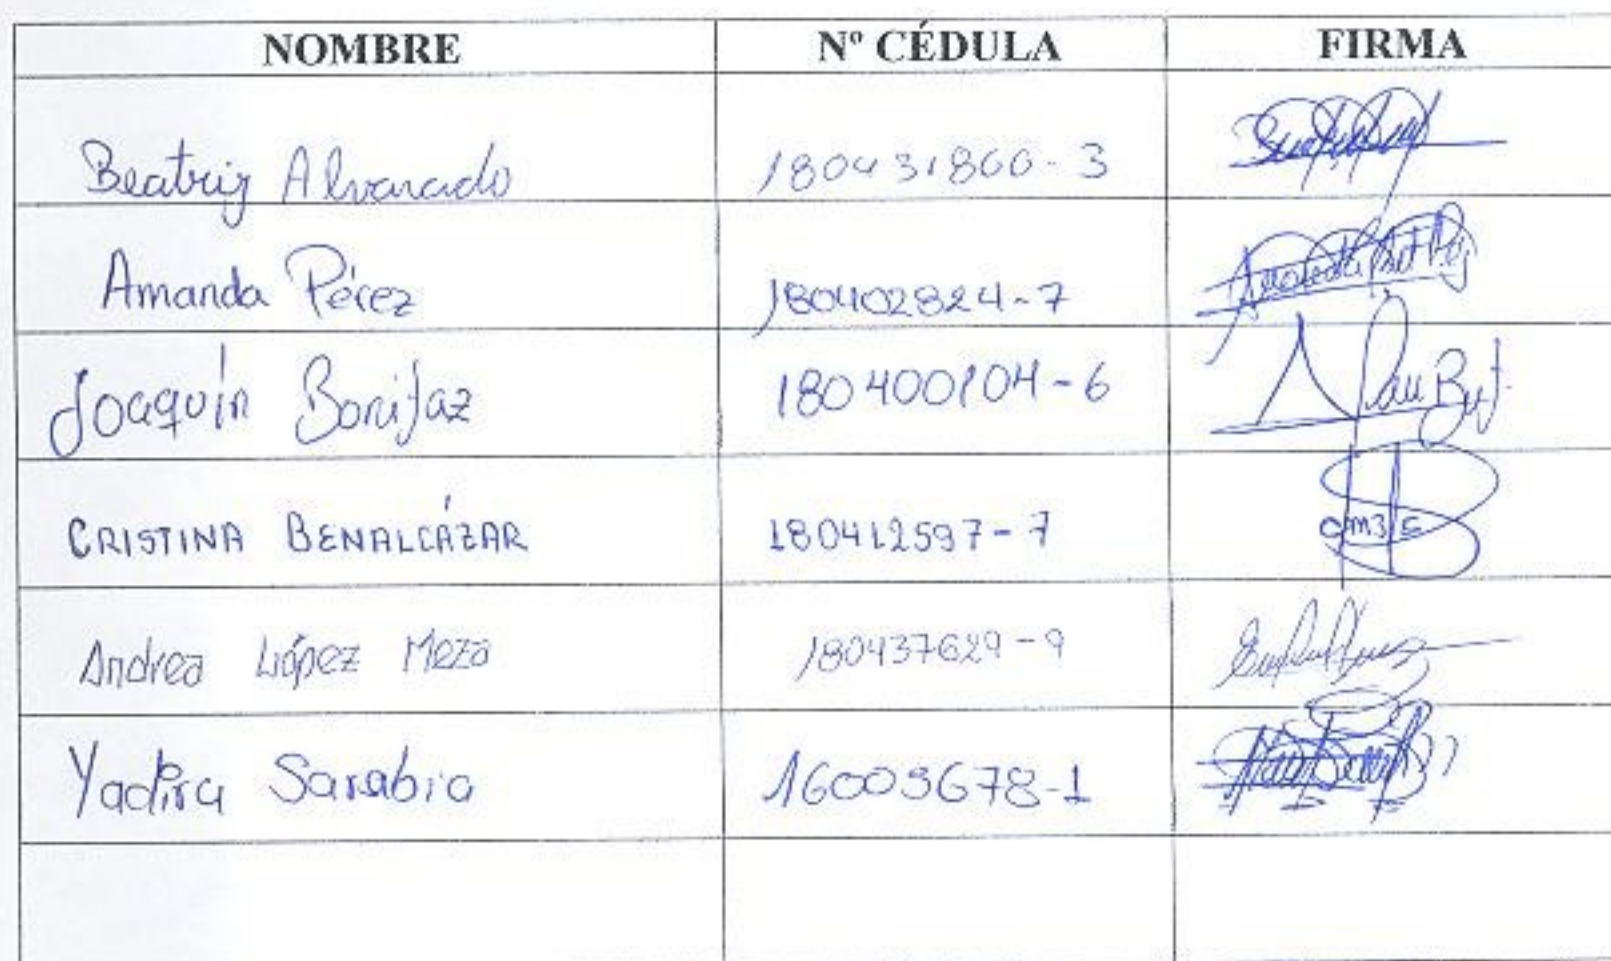 NOMBRE Nº CÉDULA FIRMA
Beatriz Alvarado 180431860-3
Amanda Pérez 180402824-7
Joaquín Bonifaz 180400104-6
CRISTINA BENALCÁZAR 180412597-7
Andrea López Meza 180437629-9
Yadira Sarabia 16003678-1